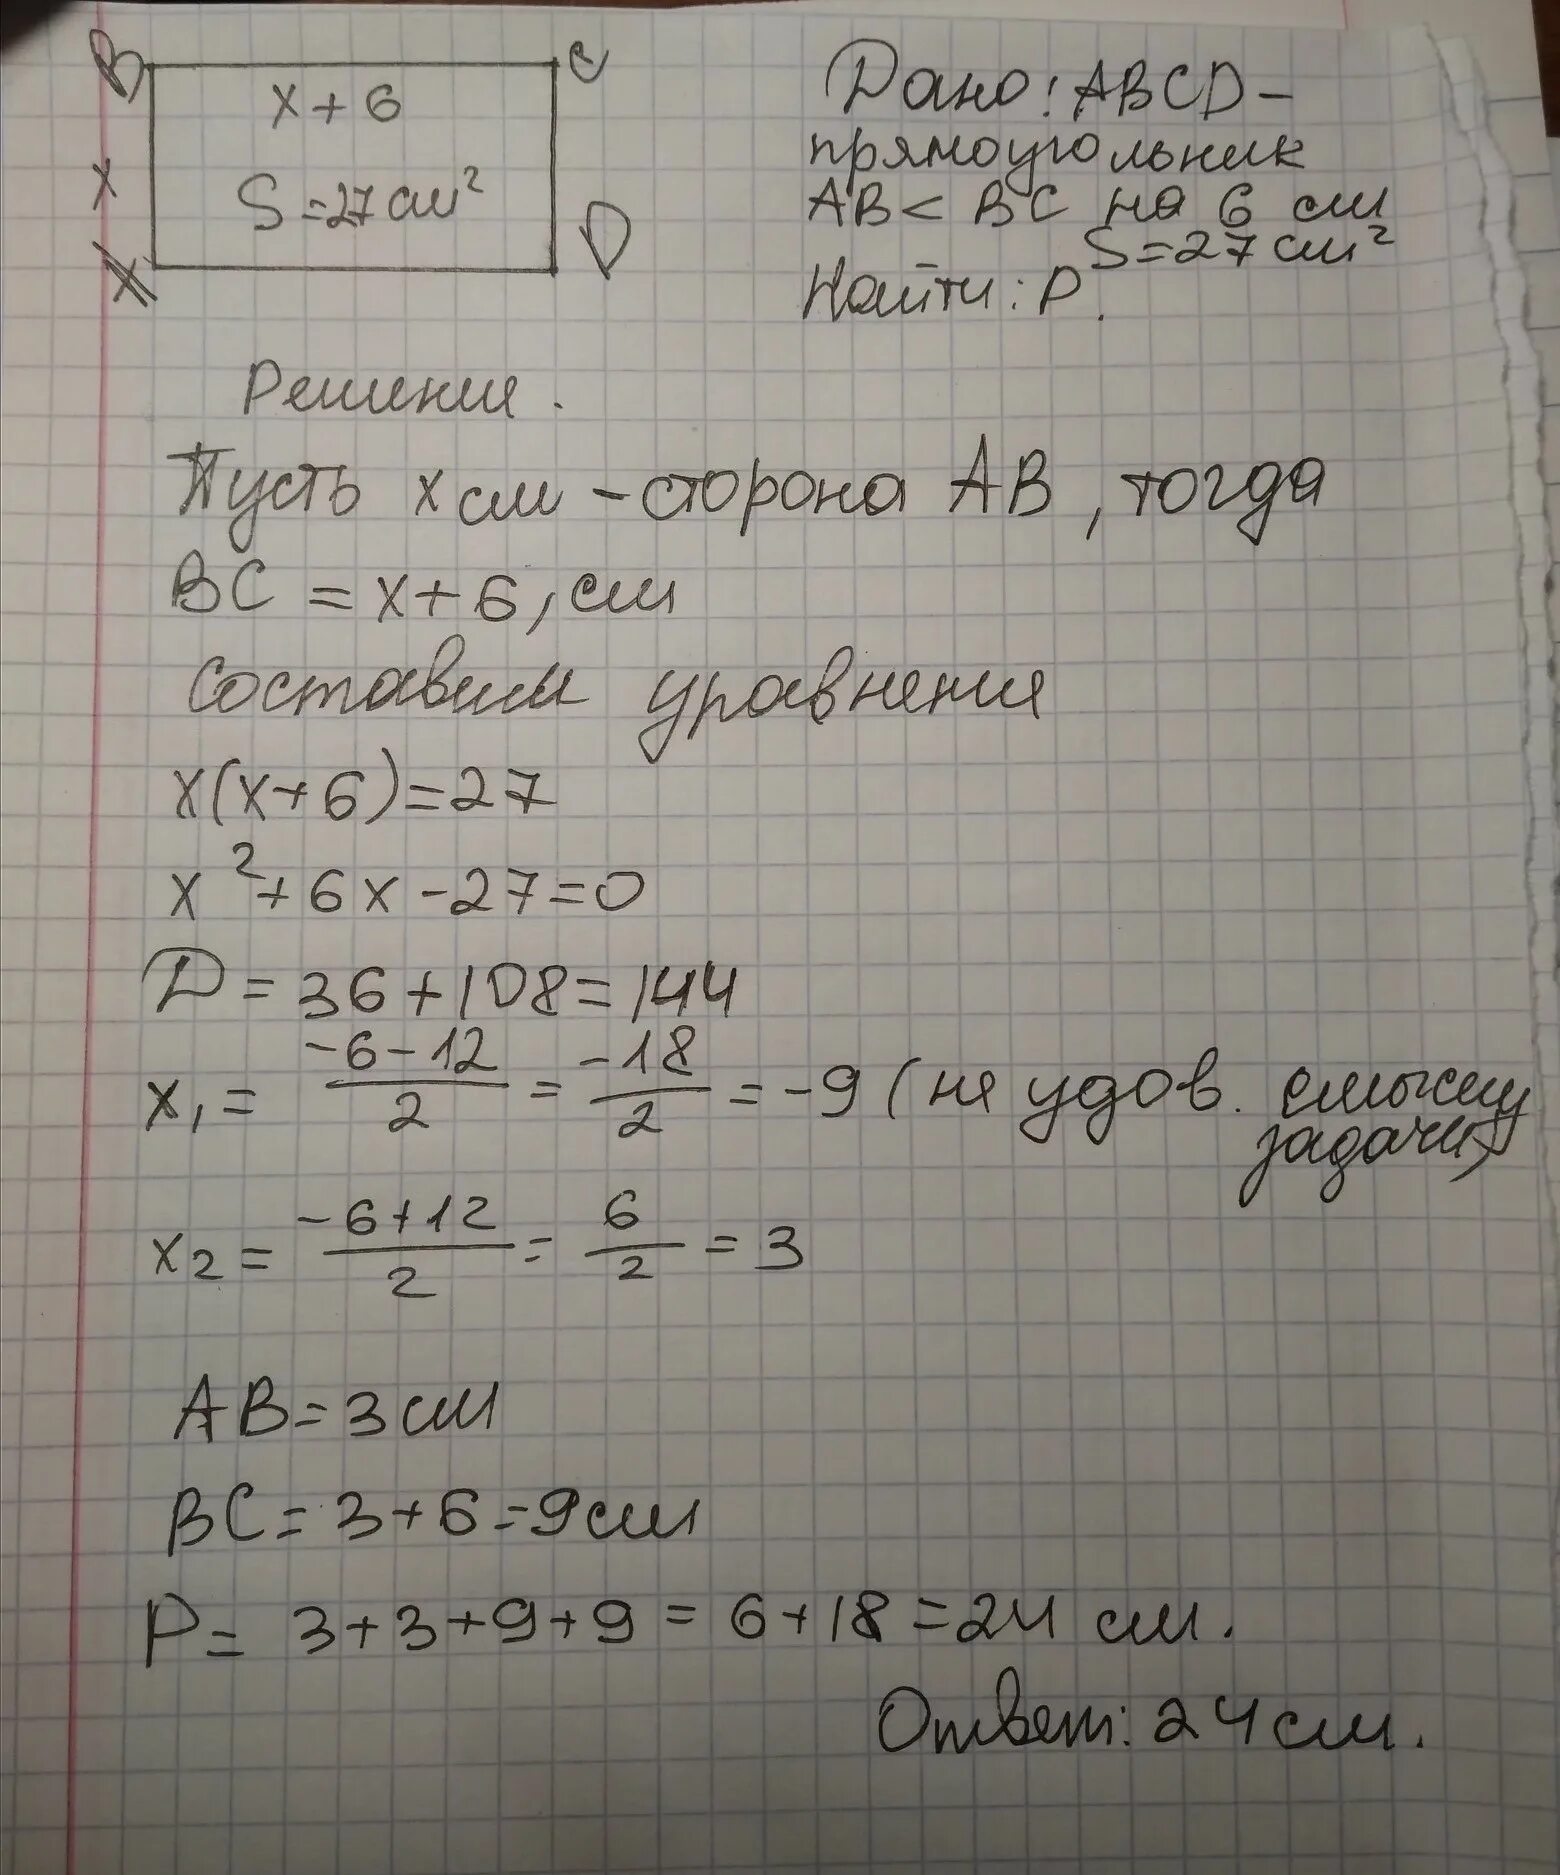 B C
x + 6
x
S = 27 см²
A D
Дано: ABCD –
прямоугольник
AB < BC на 6 см
S = 27 см²
Найти: P.
Решение.
Пусть x см – сторона AB, тогда
BC = x + 6, см
Составим уравнение
x(x+6) = 27
x² + 6x - 27 = 0
D = 36 + 108 = 144
x₁ = (-6-12)/2 = -18/2 = -9 (не удов. смыслу
задачи)
x₂ = (-6+12)/2 = 6/2 = 3
AB = 3 см
BC = 3 + 6 = 9 см
P = 3 + 3 + 9 + 9 = 6 + 18 = 24 см.
Ответ: 24 см.